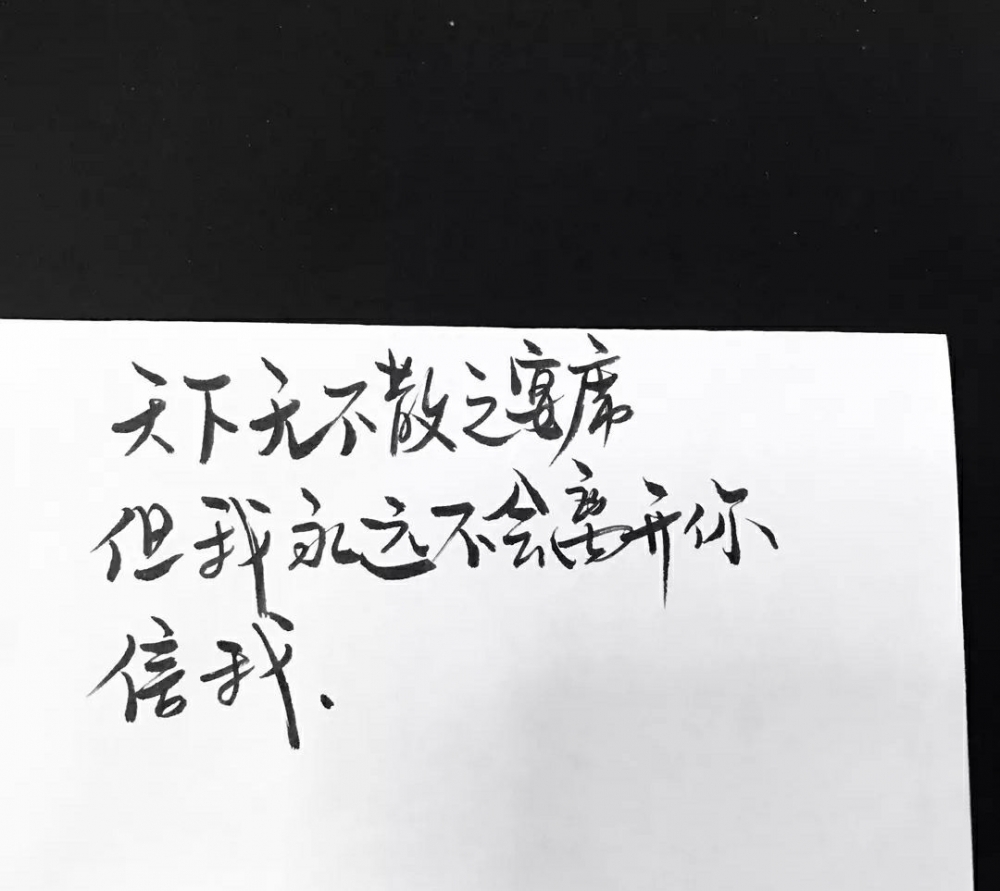 天下无不散之宴席
但我永远不会离开你
信我.